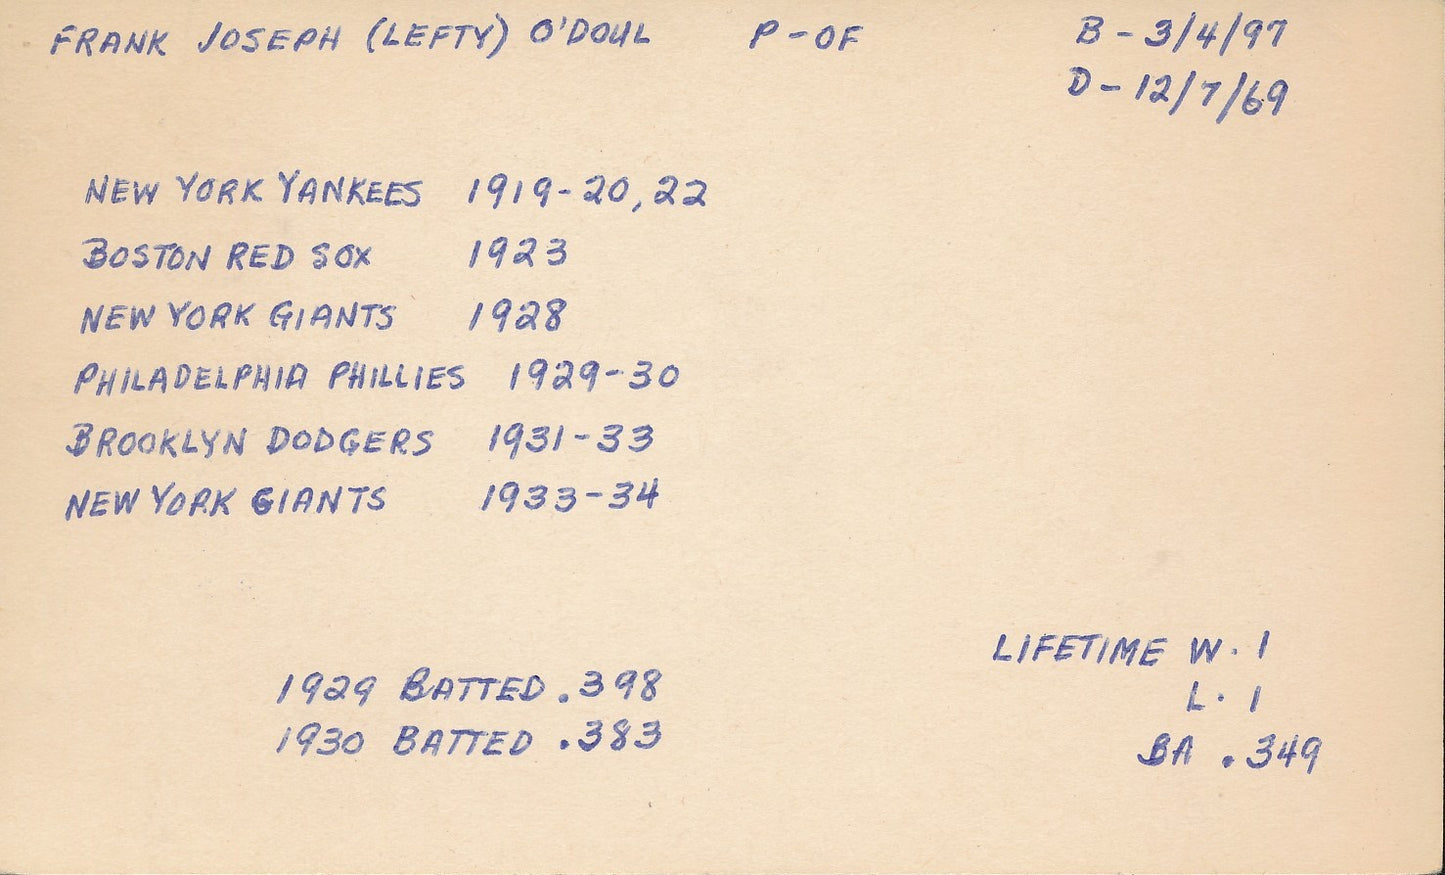 FRANK JOSEPH (LEFTY) O'DOUL P-OF B-3/4/97
D-12/7/69
NEW YORK YANKEES 1919-20, 22
BOSTON RED SOX 1923
NEW YORK GIANTS 1928
PHILADELPHIA PHILLIES 1929-30
BROOKLYN DODGERS 1931-33
NEW YORK GIANTS 1933-34
LIFETIME W. 1
1929 BATTED .398
L. 1
1930 BATTED .383
BA .349